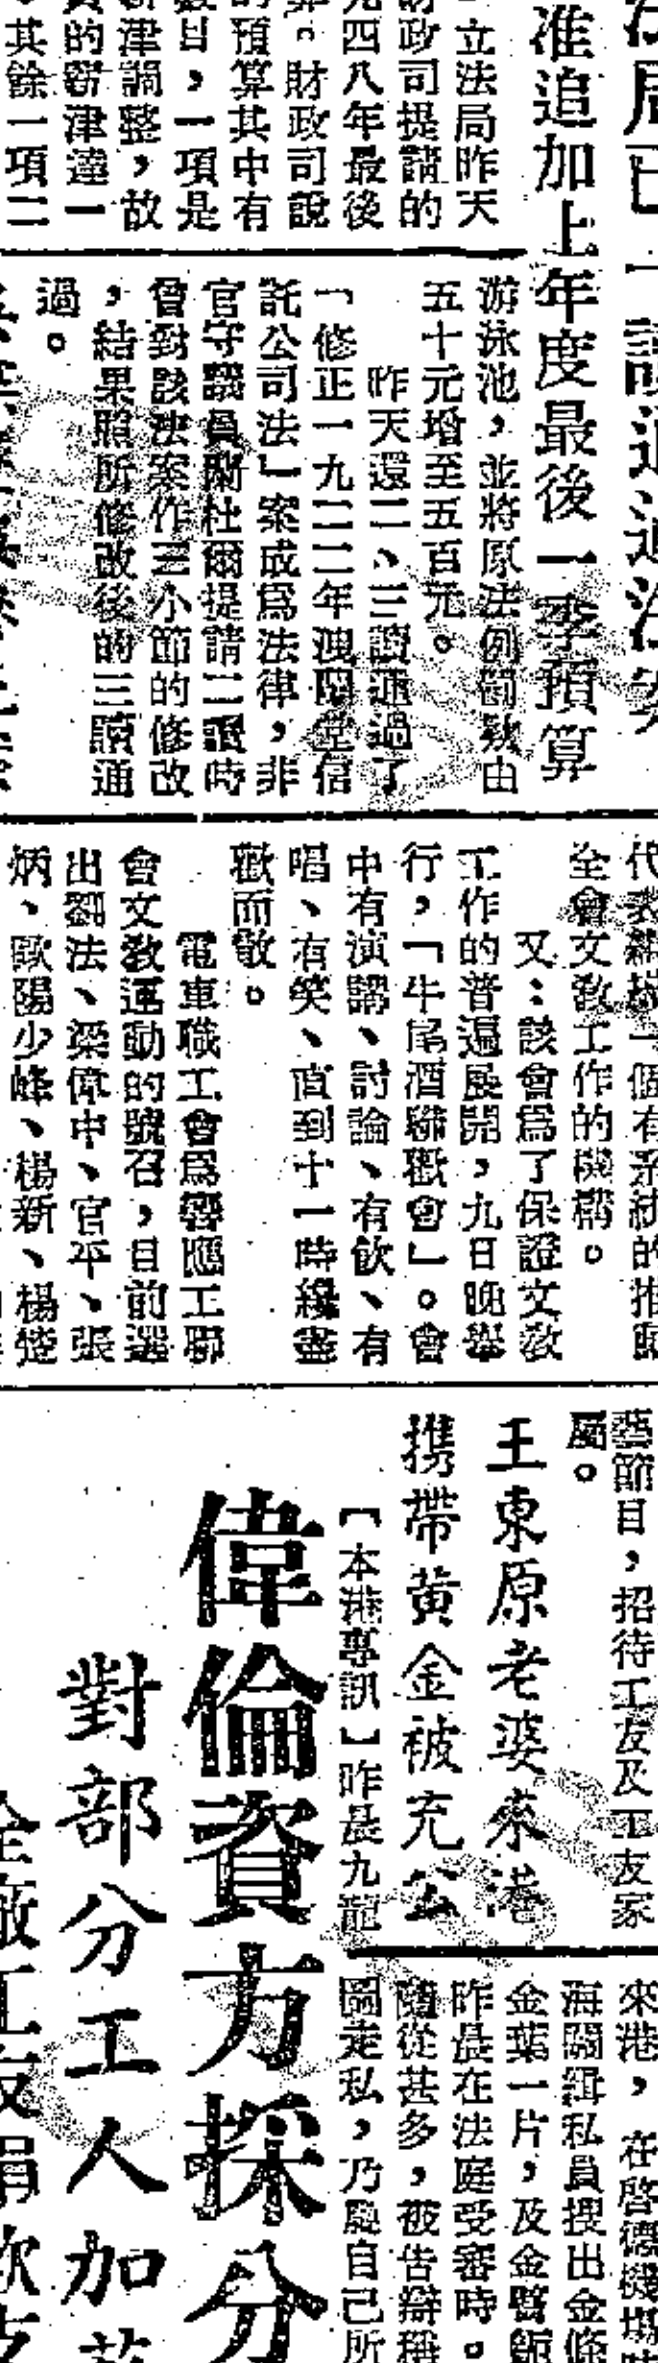 准追加上年度最後一季預算
立法局昨天
財政司提請的
四八年最後
。財政司說
的預算其中有
數目，一項是
薪津調整，故
的薪津達一
其餘一項二
游泳池，並將原法例罰欵由
五十元增至五百元。
昨天還二、三讀通過了
「修正一九二二年
託公司法」案成爲法律，非
官守議員蘭杜爾提請二讀時
會對該法案作三小節的修改
，結果照所修改後的三讀通
過。
全會文教工作的機構。
又：該會爲了保證文教
工作的普遍展開，九日晚舉
行，「牛尾酒聯歡會」。會
中有演講、討論、有飲、有
唱、有笑、直到十一時纔盡
歡而散。
電車職工會爲響應工聯
會文教運動的號召，目前選
出劉法、梁偉中、官平、張
炳、歐陽少峰、楊新、楊楚
藝節目，招待工友及工友家
屬。
王東原老婆來港
携帶黃金被充公
【本港專訊】昨晨九龍
來港，在啓德機場
海關緝私員搜出金條
金葉一片，及金
昨晨在法庭受審時。
隨從甚多，被告辯稱
圖走私，乃屬自己所
偉倫資方採分
對部分工人加
全廠工友捐欵支